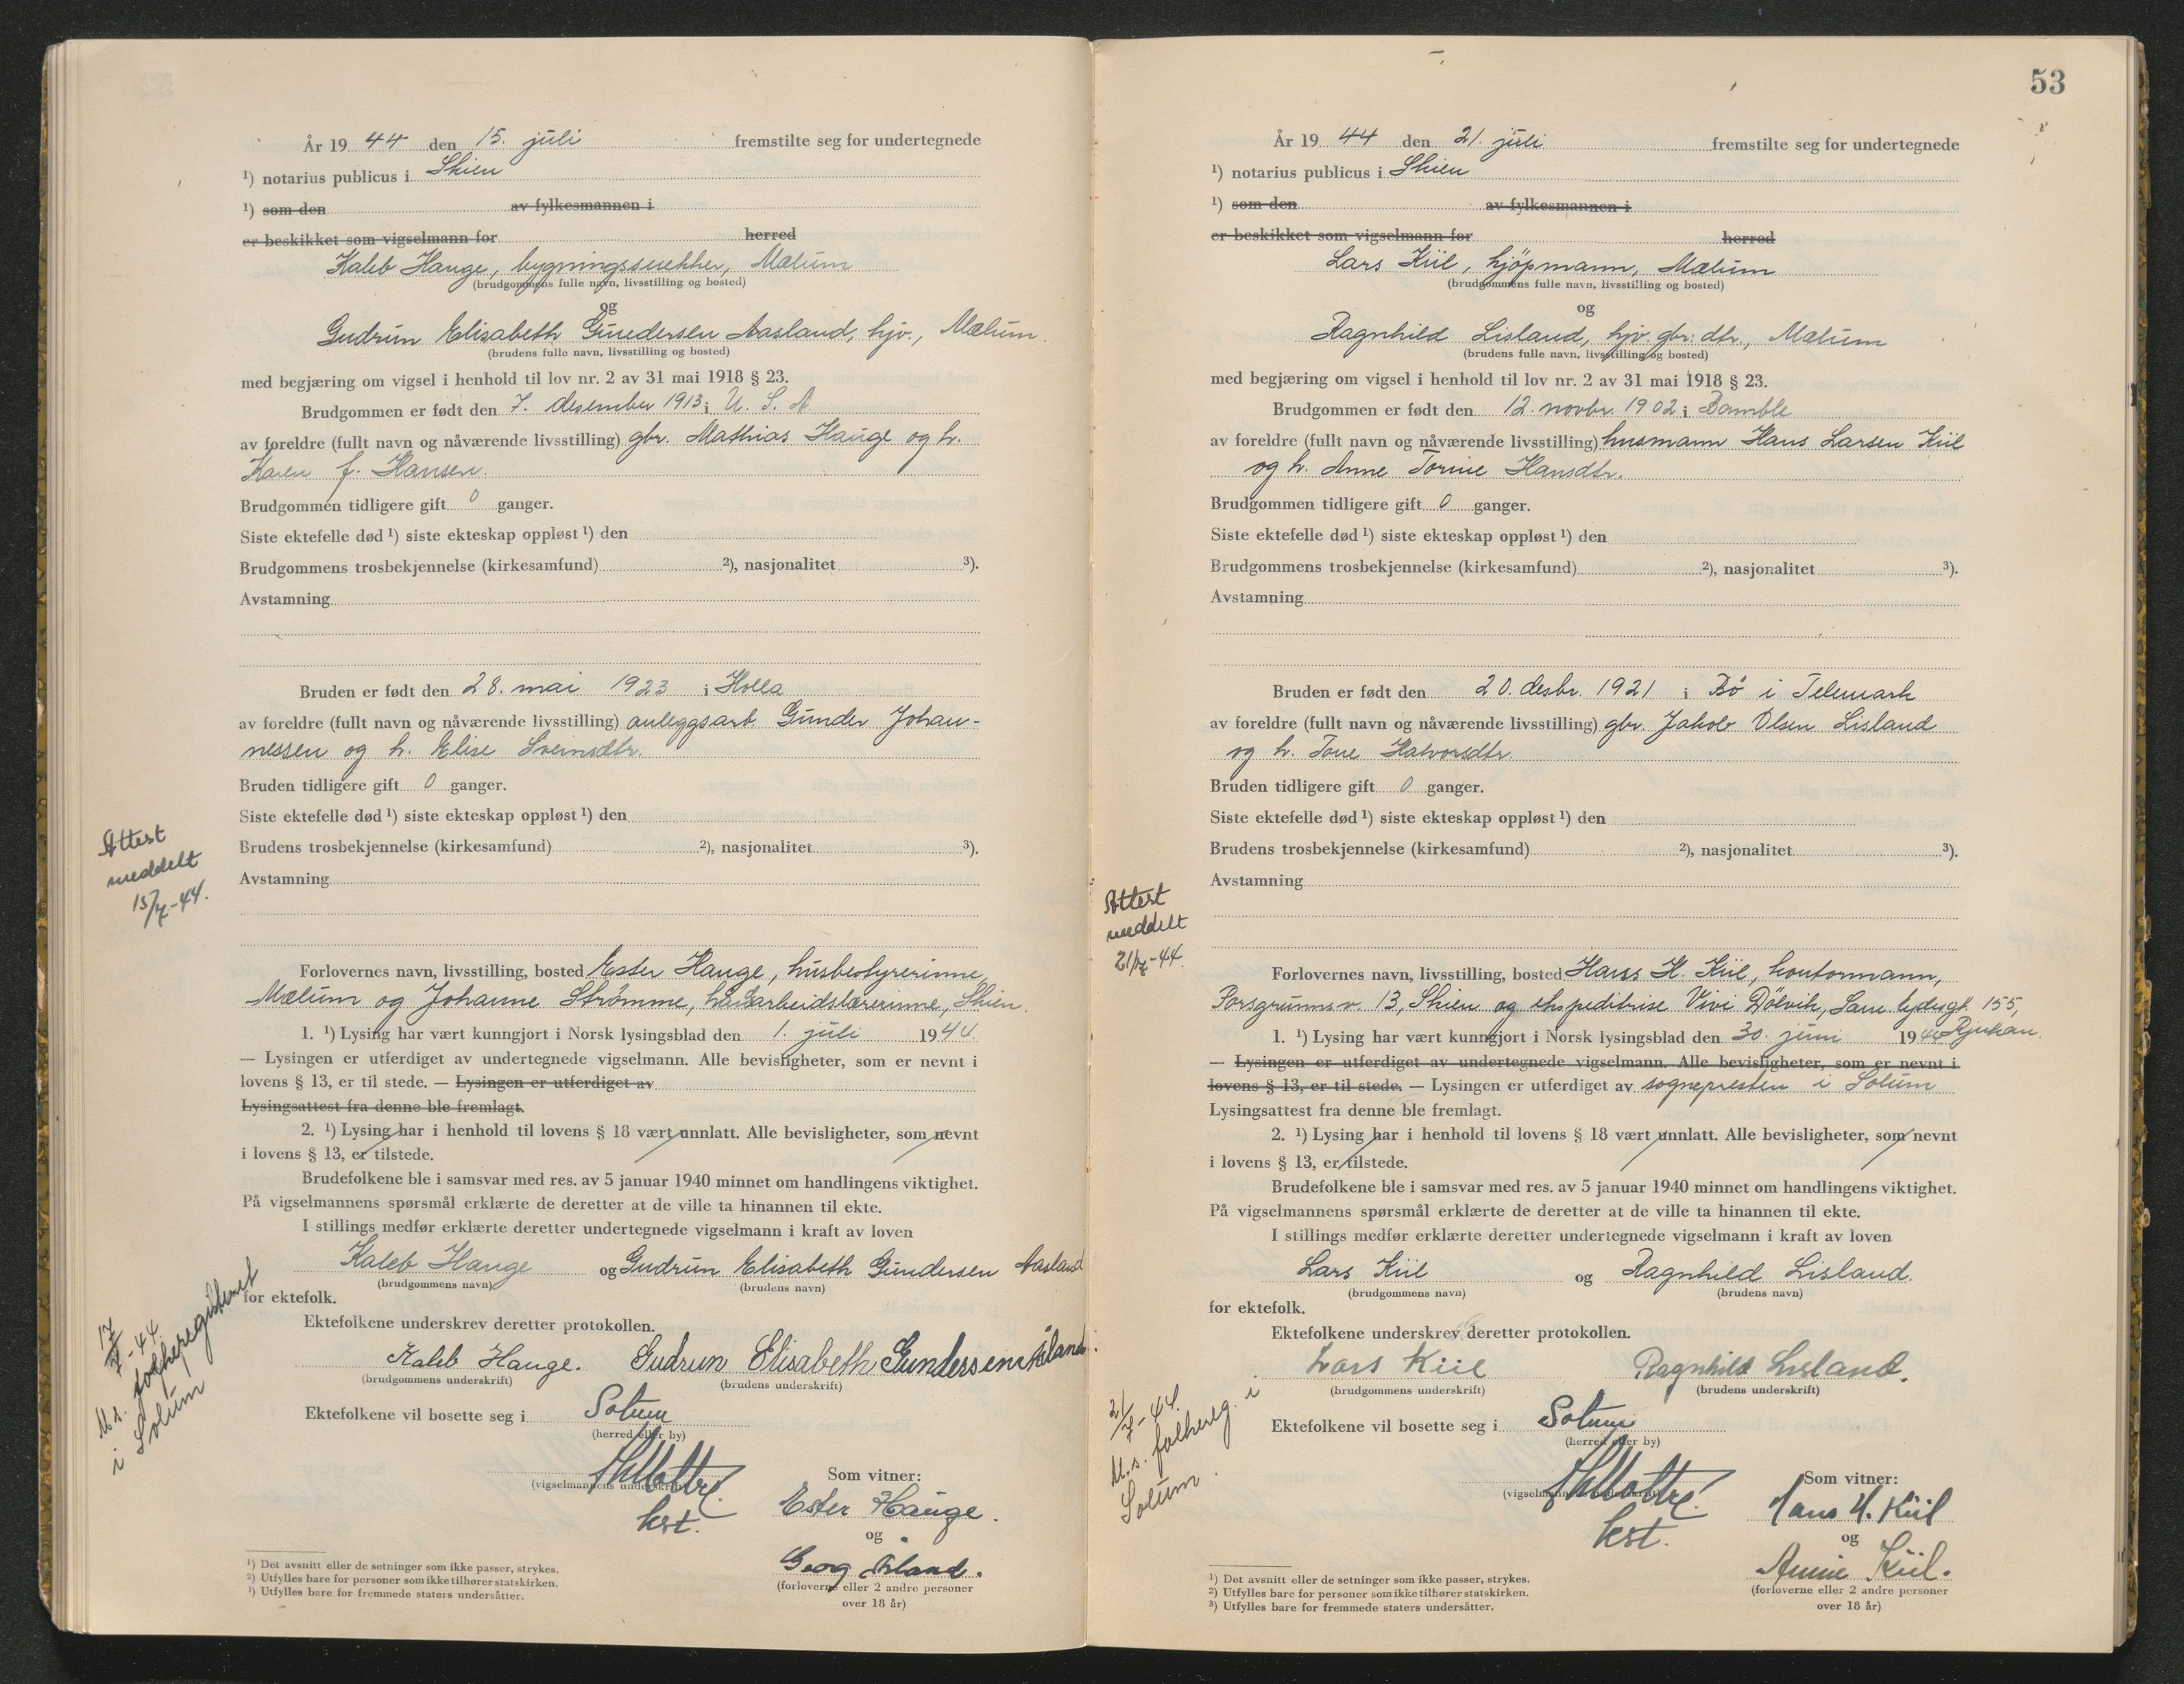 År 1944 den 15. juli fremstilte seg for undertegnede
¹) notarius publicus i Skien
¹) som den av fylkesmannen i
er beskikket som vigselmann for herred
Kaleb Hauge, bygningssnekker, Mælum
(brudgommens fulle navn, livsstilling og bosted)
og
Gudrun Elisabeth Gundersen Aasland, hjv., Mælum.
(brudens fulle navn, livsstilling og bosted)
med begjæring om vigsel i henhold til lov nr. 2 av 31 mai 1918 § 23.
Brudgommen er født den 7. desember 1913 i U. S. A
av foreldre (fullt navn og nåværende livsstilling) gbr. Mathias Hauge og h.
Karen f. Hansen.
Brudgommen tidligere gift 0 ganger.
Siste ektefelle død ¹) siste ekteskap oppløst ¹) den
Brudgommens trosbekjennelse (kirkesamfund) ²), nasjonalitet ³).
Avstamning
Bruden er født den 28. mai 1923 i Holla
av foreldre (fullt navn og nåværende livsstilling) anleggsarb. Gunder Johan-
nessen og h. Elise Sveinsdtr.
Bruden tidligere gift 0 ganger.
Siste ektefelle død ¹) siste ekteskap oppløst ¹) den
Brudens trosbekjennelse (kirkesamfund) ²), nasjonalitet ³).
Avstamning
Attest
meddelt
15/7-44.
Forlovernes navn, livsstilling, bosted Ester Hauge, husbestyrerinne,
Mælum og Johanne Strømme, håndarbeidslærerinne, Skien.
1. ¹) Lysing har vært kunngjort i Norsk lysingsblad den 1. juli 1944.
— Lysingen er utferdiget av undertegnede vigselmann. Alle bevisligheter, som er nevnt i
lovens § 13, er til stede. — Lysingen er utferdiget av
Lysingsattest fra denne ble fremlagt.
2. ¹) Lysing har i henhold til lovens § 18 vært unnlatt. Alle bevisligheter, som nevnt
i lovens § 13, er tilstede.
Brudefolkene ble i samsvar med res. av 5 januar 1940 minnet om handlingens viktighet.
På vigselmannens spørsmål erklærte de deretter at de ville ta hinannen til ekte.
I stillings medfør erklærte deretter undertegnede vigselmann i kraft av loven
Kaleb Hauge og Gudrun Elisabeth Gundersen Aasland
(brudgommens navn) (brudens navn)
for ektefolk.
Ektefolkene underskrev deretter protokollen.
Kaleb Hauge. Gudrun Elisabeth Gundersen Åsland.
(brudgommens underskrift) (brudens underskrift)
17/7-44
M.s. folkeregisteret
i Solum
Ektefolkene vil bosette seg i Solum
(herred eller by)
(vigselmannens underskrift)
kst.
Som vitner:
Ester Hauge.
og
Georg Åsland.
(forloverne eller 2 andre personer
over 18 år)
¹) Det avsnitt eller de setninger som ikke passer, strykes.
²) Utfylles bare for personer som ikke tilhører statskirken.
³) Utfylles bare for fremmede staters undersåtter.
53
År 1944 den 21. juli fremstilte seg for undertegnede
¹) notarius publicus i Skien
¹) som den av fylkesmannen i
er beskikket som vigselmann for herred
Lars Kiil, kjøpmann, Mælum
(brudgommens fulle navn, livsstilling og bosted)
og
Ragnhild Lisland, hjv. gbr. dtr., Mælum
(brudens fulle navn, livsstilling og bosted)
med begjæring om vigsel i henhold til lov nr. 2 av 31 mai 1918 § 23.
Brudgommen er født den 12. novbr. 1902 i Bamble
av foreldre (fullt navn og nåværende livsstilling) husmann Hans Larsen Kiil
og h. Anne Torine Hansdtr.
Brudgommen tidligere gift 0 ganger.
Siste ektefelle død ¹) siste ekteskap oppløst ¹) den
Brudgommens trosbekjennelse (kirkesamfund) ²), nasjonalitet ³).
Avstamning
Bruden er født den 20. desbr. 1921 i Bø i Telemark
av foreldre (fullt navn og nåværende livsstilling) gbr. Jakob Olsen Lisland
og h. Tone Halvorsdtr.
Bruden tidligere gift 0 ganger.
Siste ektefelle død ¹) siste ekteskap oppløst ¹) den
Brudens trosbekjennelse (kirkesamfund) ²), nasjonalitet ³).
Avstamning
Attest
meddelt
21/7-44.
Forlovernes navn, livsstilling, bosted Hans H. Kiil, kontormann,
Porsgrunnsv. 13, Skien og ekspeditrise Vivi Dölvik, Sam 155,
Rjukan.
1. ¹) Lysing har vært kunngjort i Norsk lysingsblad den 30. juni 1944
— Lysingen er utferdiget av undertegnede vigselmann. Alle bevisligheter, som er nevnt i
lovens § 13, er til stede. — Lysingen er utferdiget av sognepresten i Solum
Lysingsattest fra denne ble fremlagt.
2. ¹) Lysing har i henhold til lovens § 18 vært unnlatt. Alle bevisligheter, som nevnt
i lovens § 13, er tilstede.
Brudefolkene ble i samsvar med res. av 5 januar 1940 minnet om handlingens viktighet.
På vigselmannens spørsmål erklærte de deretter at de ville ta hinannen til ekte.
I stillings medfør erklærte deretter undertegnede vigselmann i kraft av loven
Lars Kiil og Ragnhild Lisland.
(brudgommens navn) (brudens navn)
for ektefolk.
Ektefolkene underskrev deretter protokollen.
Lars Kiil Ragnhild Lisland.
(brudgommens underskrift) (brudens underskrift)
21/7-44.
M.s. folkereg. i
Solum.
Ektefolkene vil bosette seg i Solum
(herred eller by)
(vigselmannens underskrift)
kst.
Som vitner:
Hans H. Kiil
og
Annie Kiil.
(forloverne eller 2 andre personer
over 18 år)
¹) Det avsnitt eller de setninger som ikke passer, strykes.
²) Utfylles bare for personer som ikke tilhører statskirken.
³) Utfylles bare for fremmede staters undersåtter.